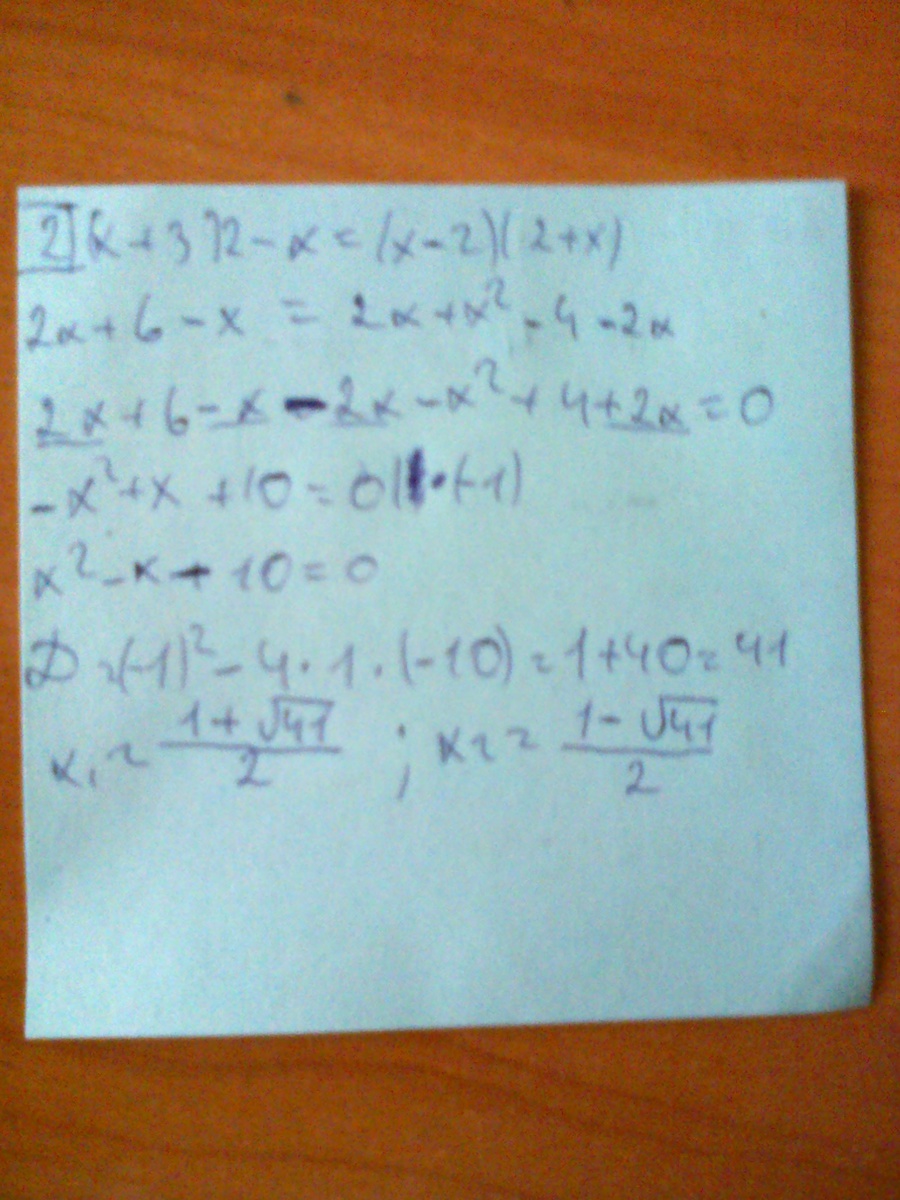 2 (x+3)2-x=(x-2)(2+x)
2x+6-x = 2x+x²-4-2x
2x+6-x-2x-x²+4+2x=0
-x²+x+10=0||·(-1)
x²-x-10=0
D=(-1)²-4·1·(-10)=1+40=41
x₁=(1+√41)/2 ; x₂=(1-√41)/2